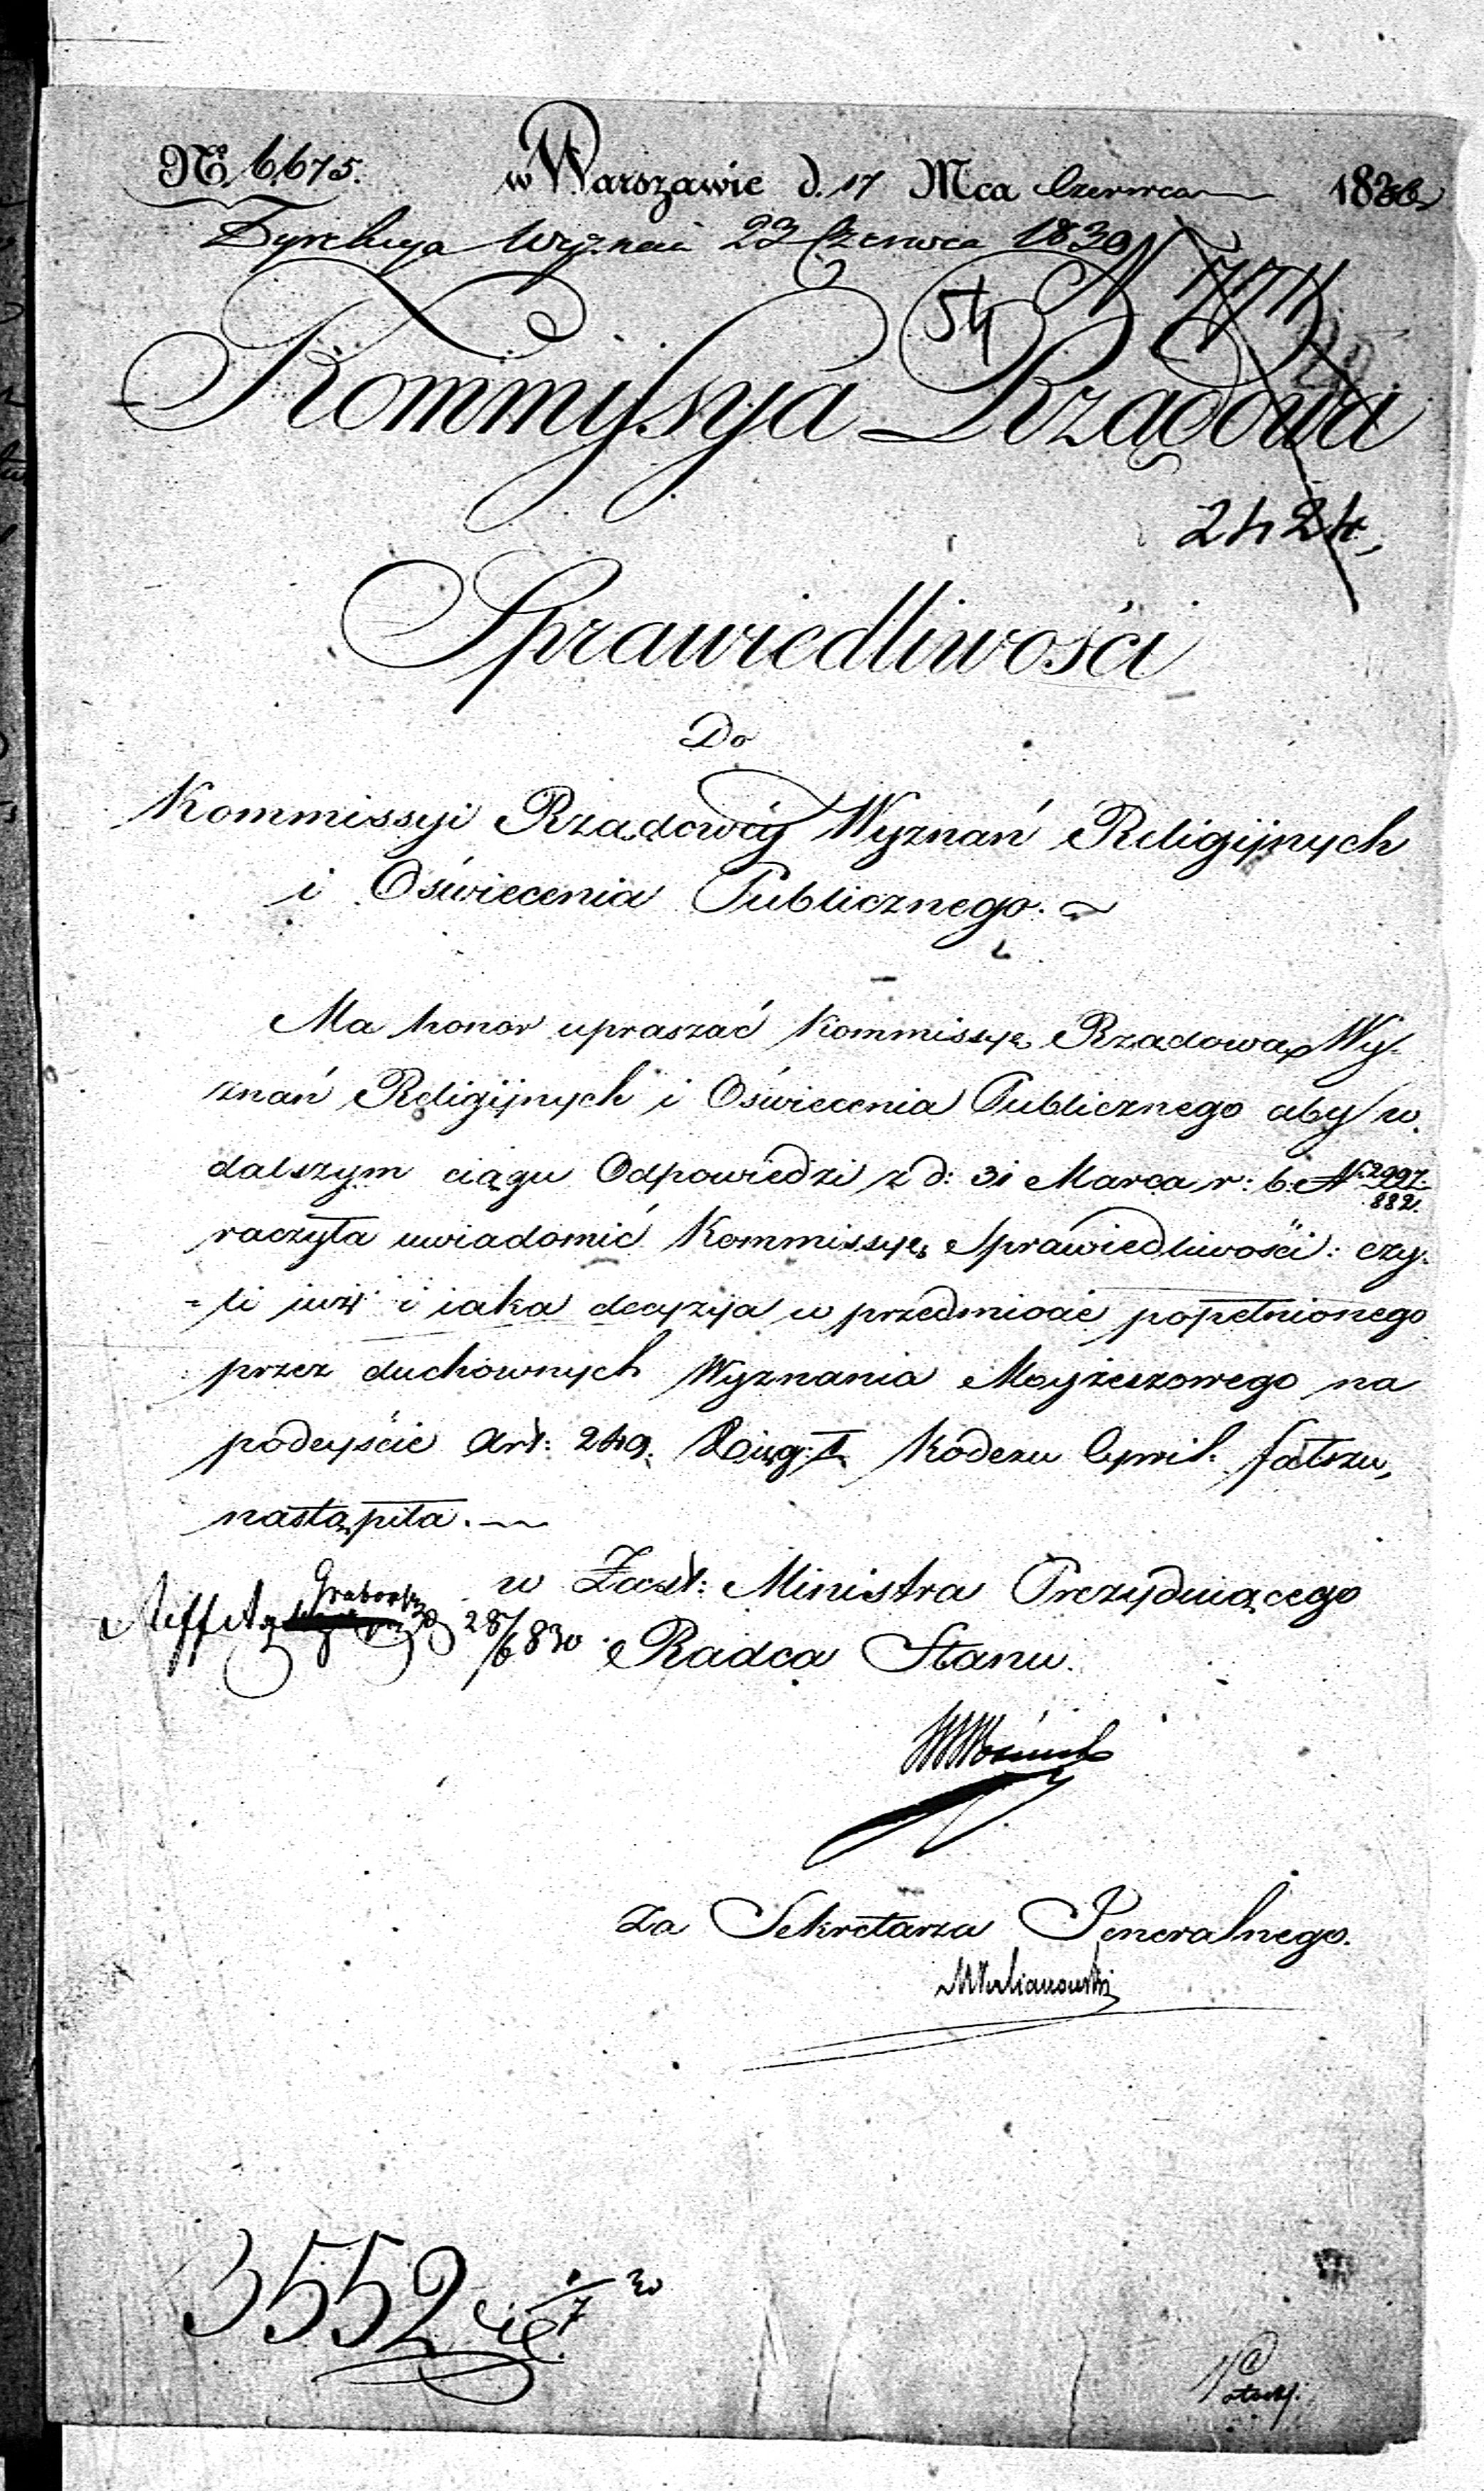 No 6675. w Warszawie d. 17 Mca Czerwca 1830
Dyrekcya Wyznań 23 Czerwca 1830 N 7711
54
Kommissya Rządowa
2424,
Sprawiedliwości
Do
Kommissyi Rządowéy Wyznań Religiynych
i Oświecenia Publicznego.
Ma honor upraszać Kommissyę Rządową Wy-
znań Religiynych i Oświecenia Publicznego aby w
dalszym ciągu Odpowiedzi z d: 31 Marca r: b: N 2997/882.
raczyła uwiadomić Kommissyę Sprawiedliwości: czy-
-li iuż i iaka decyzya w przedmiocie popełnionego
przez duchownych Wyznania Moyżeszowego na
podeyście Art: 249. Księg: I. Kodexu Cywil. fałszu,
nastąpiła.
w Zast: Ministra Prezyduiącego
Grabowski 28/6 830
Radca Stanu.
Woźnicki
Za Sekretarza Jeneralnego.
3552
1/7 30